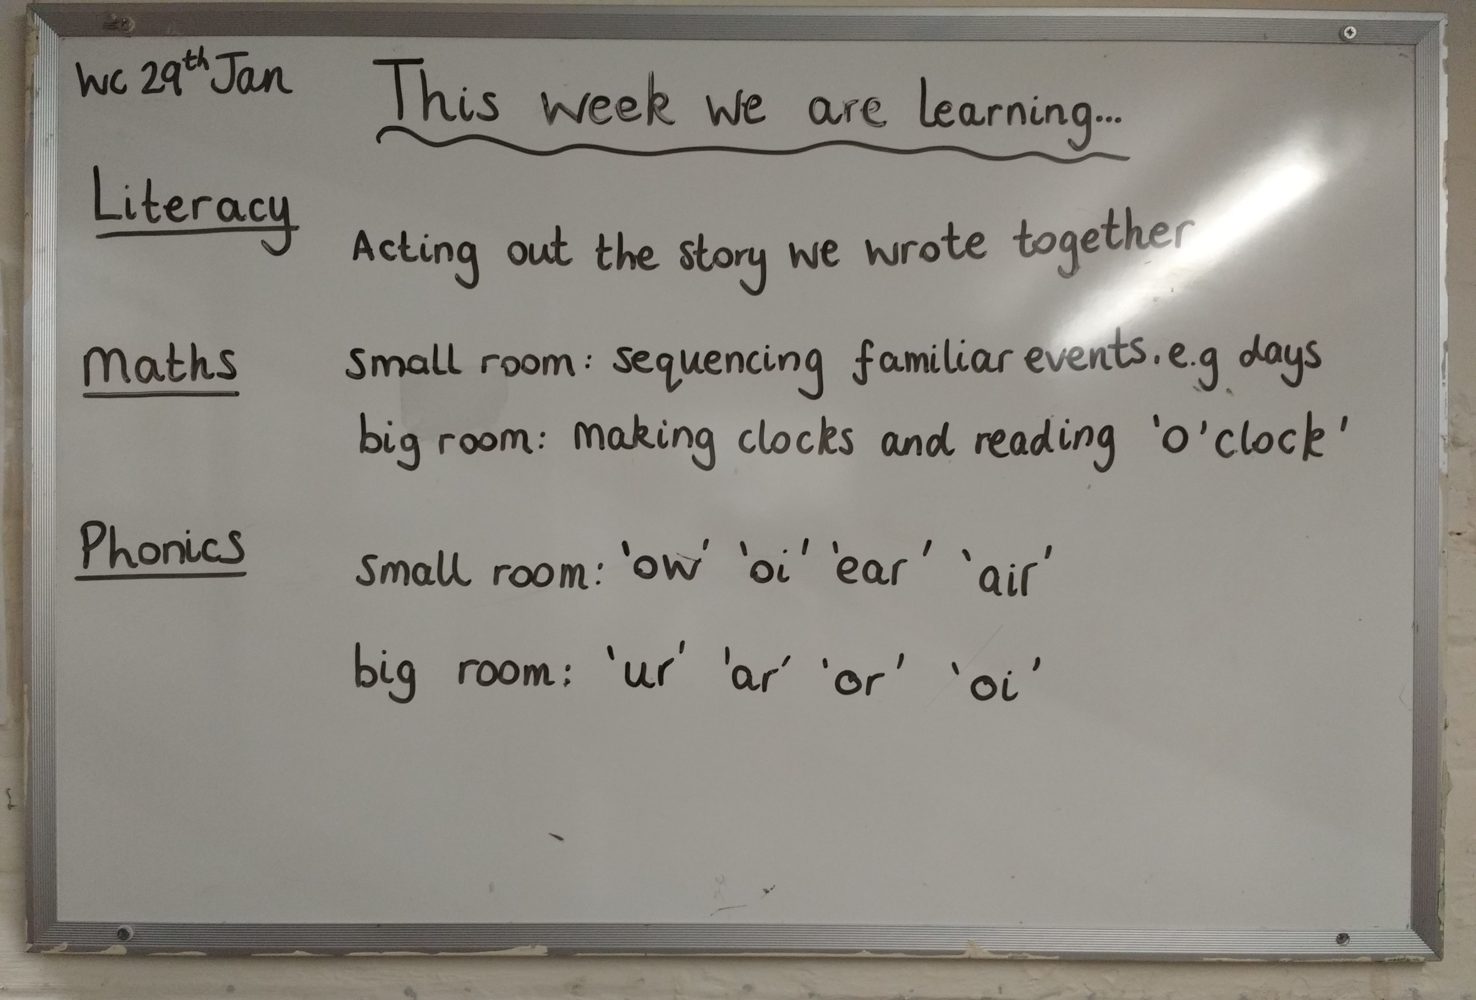 WC 29th Jan
This week we are learning...
Literacy
Acting out the story we wrote together
Maths
Small room: sequencing familiar events. e.g days
big room: making clocks and reading 'o'clock'
Phonics
Small room: 'ow' 'oi' 'ear' 'air'
big room: 'ur' 'ar' 'or' 'oi'